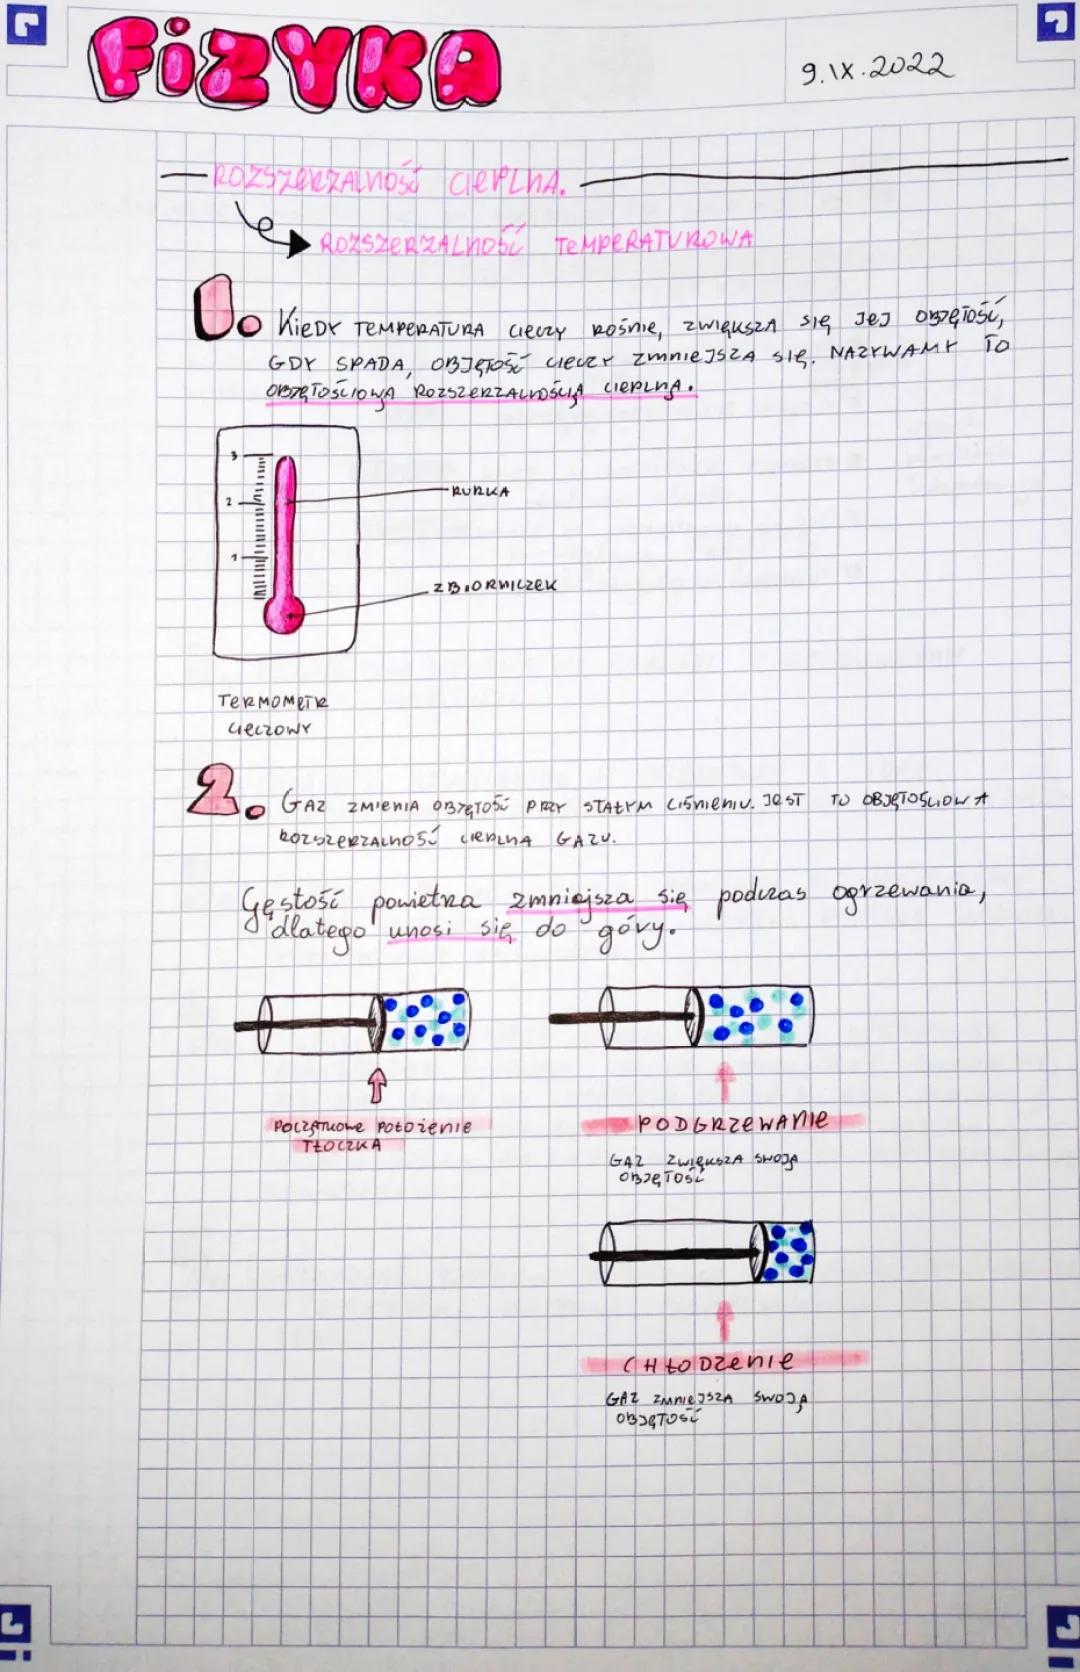 FiZYKA
9.IX.2022
ROZSZERZALNOŚĆ CIEPLNA.
ROZSZERZALNOŚĆ TEMPERATUROWA
1. KIEDY TEMPERATURA CIECZY ROŚNIE, ZWIĘKSZA SIĘ JEJ OBJĘTOŚĆ,
GDY SPADA, OBJĘTOŚĆ CIECZY ZMNIEJSZA SIĘ. NAZYWAMY TO
OBJĘTOŚCIOWĄ ROZSZERZALNOŚCIĄ CIEPLNĄ.
3
2
1
RURKA
ZBIORNICZEK
TERMOMETR
CIECZOWY
2. GAZ ZMIENIA OBJĘTOŚĆ PRZY STAŁYM CIŚNIENIU. JEST TO OBJĘTOŚCIOWA
ROZSZERZALNOŚĆ CIEPLNA GAZU.
Gęstość powietrza zmniejsza się podczas ogrzewania,
dlatego unosi się do góry.
POCZĄTKOWE POŁOŻENIE
TŁOCZKA
PODGRZEWANIE
GAZ ZWIĘKSZA SWOJĄ
OBJĘTOŚĆ
CHŁODZENIE
GAZ ZMNIEJSZA SWOJĄ
OBJĘTOŚĆ